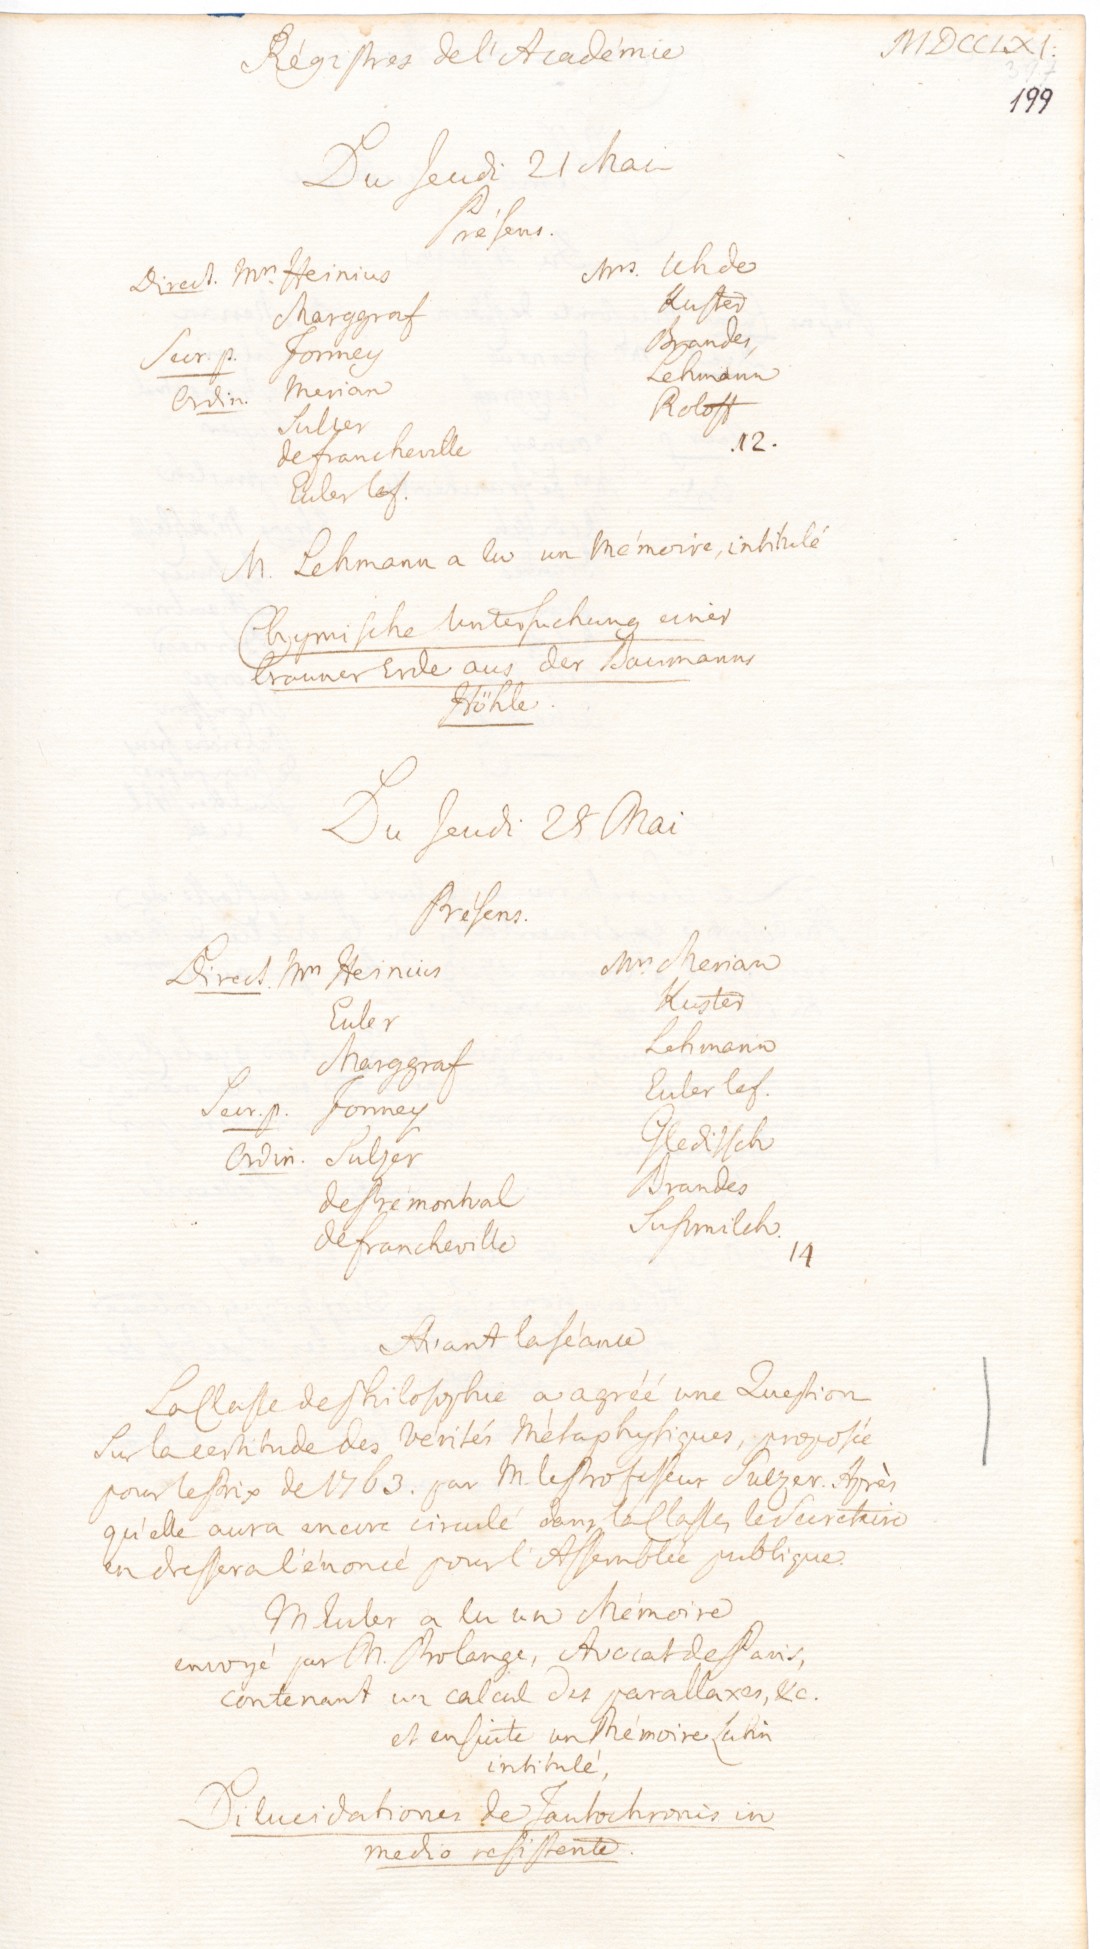 Régistres de l'Académie
MDCCLXI.
199
Du Jeudi 21 Mai
Présens.
Direct. Mrs. Heinius
Marggraf
Secr. p. Formey
Ordin. Merian
Sulzer
de Francheville
Euler le f.
Mrs. Uhde
Kuster
Brandes,
Lehmann
Roloff
.12.
M. Lehmann a lu un Mémoire, intitulé
Chymische Untersuchung einer
brauner Erde aus der Baumanns
Höhle.
Du Jeudi 28 Mai
Présens.
Direct. Mrs Heinius
Euler
Marggraf
Secr. p. Formey
Ordin. Sulzer
de Prémontval
de Francheville
Mrs Merian
Kuster
Lehmann
Euler le f.
Gleditsch
Brandes
Susmilch.
14
Avant la séance
La Classe de Philosophie a agréé une Question
sur la certitude des Vérités Métaphysiques, proposée
pour le Prix de 1763. par M. le Professeur Sulzer. Après
qu'elle aura encore circulé dans la Classe, le Secretaire
en dressera l'énoncé pour l'Assemblée publique.
M Euler a lu un Mémoire
envoyé par M. Rolange, Avocat de Paris,
contenant un calcul des parallaxes, &c.
et ensuite un Mémoire Latin
intitulé,
Dilucidationes de Tautochronis in
medio resistente.